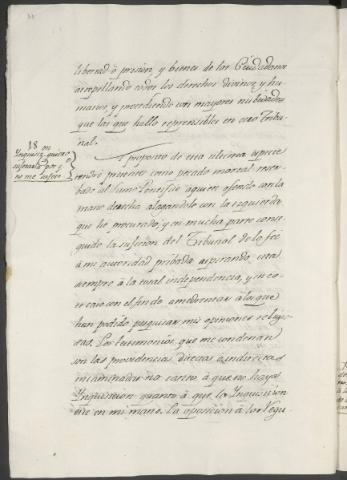 libertad ô prision, y bienes de los Ciudadanos
atropellando todos los derechos divinos y hu-
manos, y procediendo con mayores nulidades
que las que hallo reprensibles en otro Tribu-
nal.
18 en
Inquisicion quiero
y no me
A proposito de esta ultima especie
tendré presente como pecado mortal reser-
bado al Sumo Pontifice à quien ofendo con la
mano derecha alagandole con la izquierda
que he procurado, y en mucha parte conse-
guido la sugecion del Tribunal de la fee
à mi autoridad pribada aspirando esta
siempre à la total independencia, y en co-
con el fin de amedrentar à los que
han podido perjudicar mis opiniones religio-
sas. Los testimonios que me condenan
son las providencias directas è indirectas
encaminadas no tanto à que no haya
Ynquisicion quanto à que la Ynquisicion
esté en mi mano. La oposicion à los Regu-